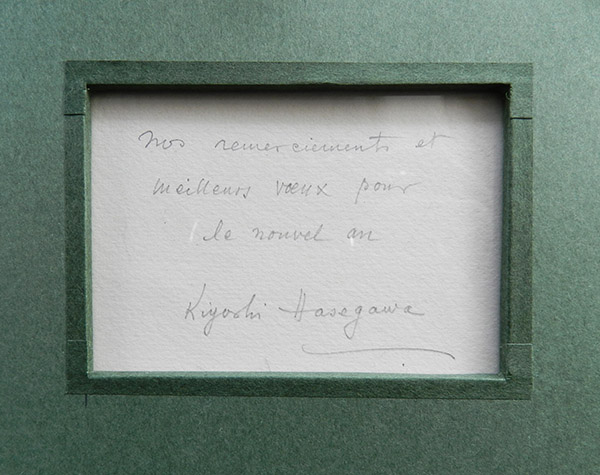 Nos remerciements et
meilleurs vœux pour
le nouvel an
Kiyoshi Hasegawa